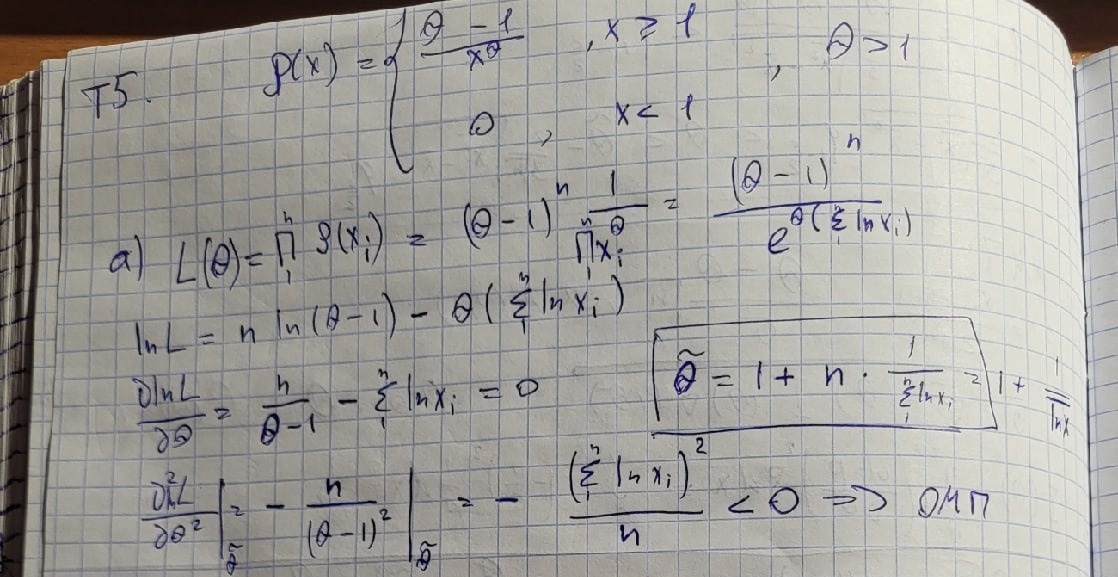 T5. p(x) = { (θ - 1)/x^θ , x ≥ 1
0 , x < 1 , θ > 1
a) L(θ) = ∏₁ⁿ p(xᵢ) = (θ - 1)ⁿ 1/(∏₁ⁿ xᵢ^θ) = (θ - 1)ⁿ / e^(θ(Σ₁ⁿ ln xᵢ))
ln L = n ln(θ - 1) - θ(Σ₁ⁿ ln xᵢ)
∂lnL/∂θ = n/(θ - 1) - Σ₁ⁿ ln xᵢ = 0
θ̃ = 1 + n · 1/(Σ₁ⁿ ln xᵢ) = 1 + 1/(\overline{ln x})
∂²lnL/∂θ² |_θ̃ = - n/(θ - 1)² |_θ̃ = - (Σ₁ⁿ ln xᵢ)²/n < 0 => ОМП